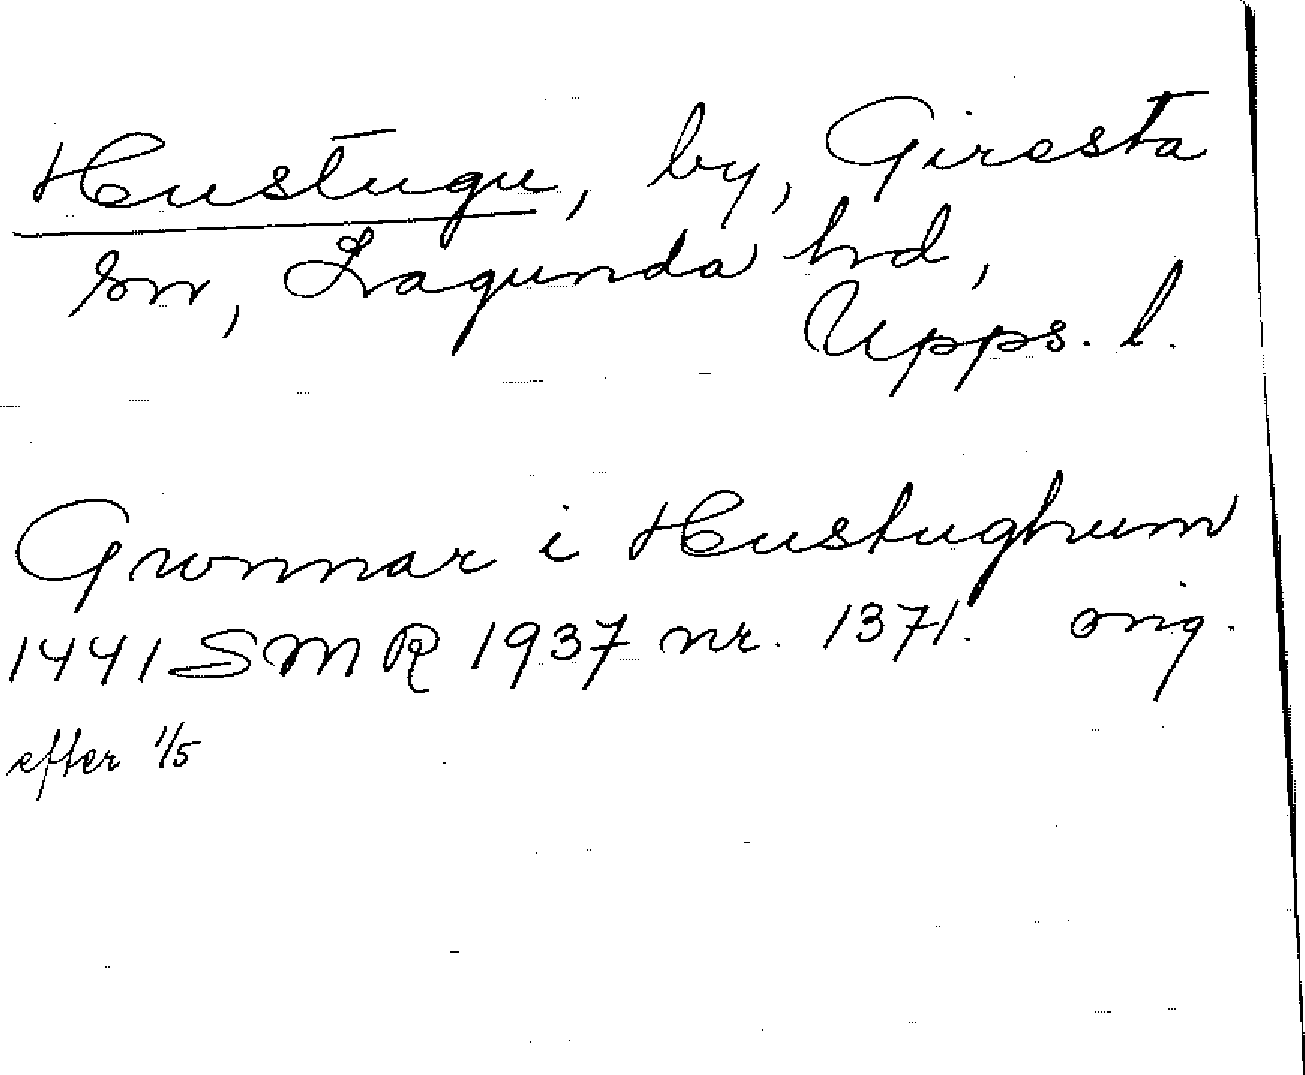 Hustugu, by, Giresta
sn, Lagunda hd,
Upps. l.
Gunnar i Hustughum
1441 SMR 1937 nr. 1371. orig.
efter 1/5